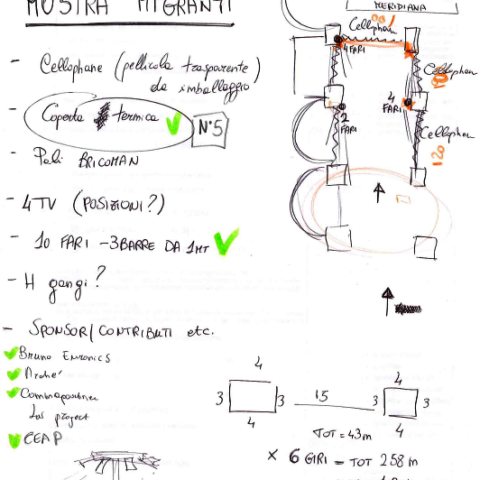 MOSTRA MIGRANTI
- Cellophane (pellicola trasparente)
da imballaggio
- Coperta termica N°5
- Pali BRICOMAN
- 4 TV (POSIZIONI?)
- 10 FARI - 3 BARRE DA 1MT
- H gangi?
- SPONSOR/CONTRIBUTI etc.
Bruno
CEAP
MERIDIANA
Cellophan
4 FARI
Cellophan
2
FARI
4
FARI
Cellophan
120
4
3 3 15 3 3
4
4
4
TOT = 43 m
× 6 GIRI = TOT 258 m